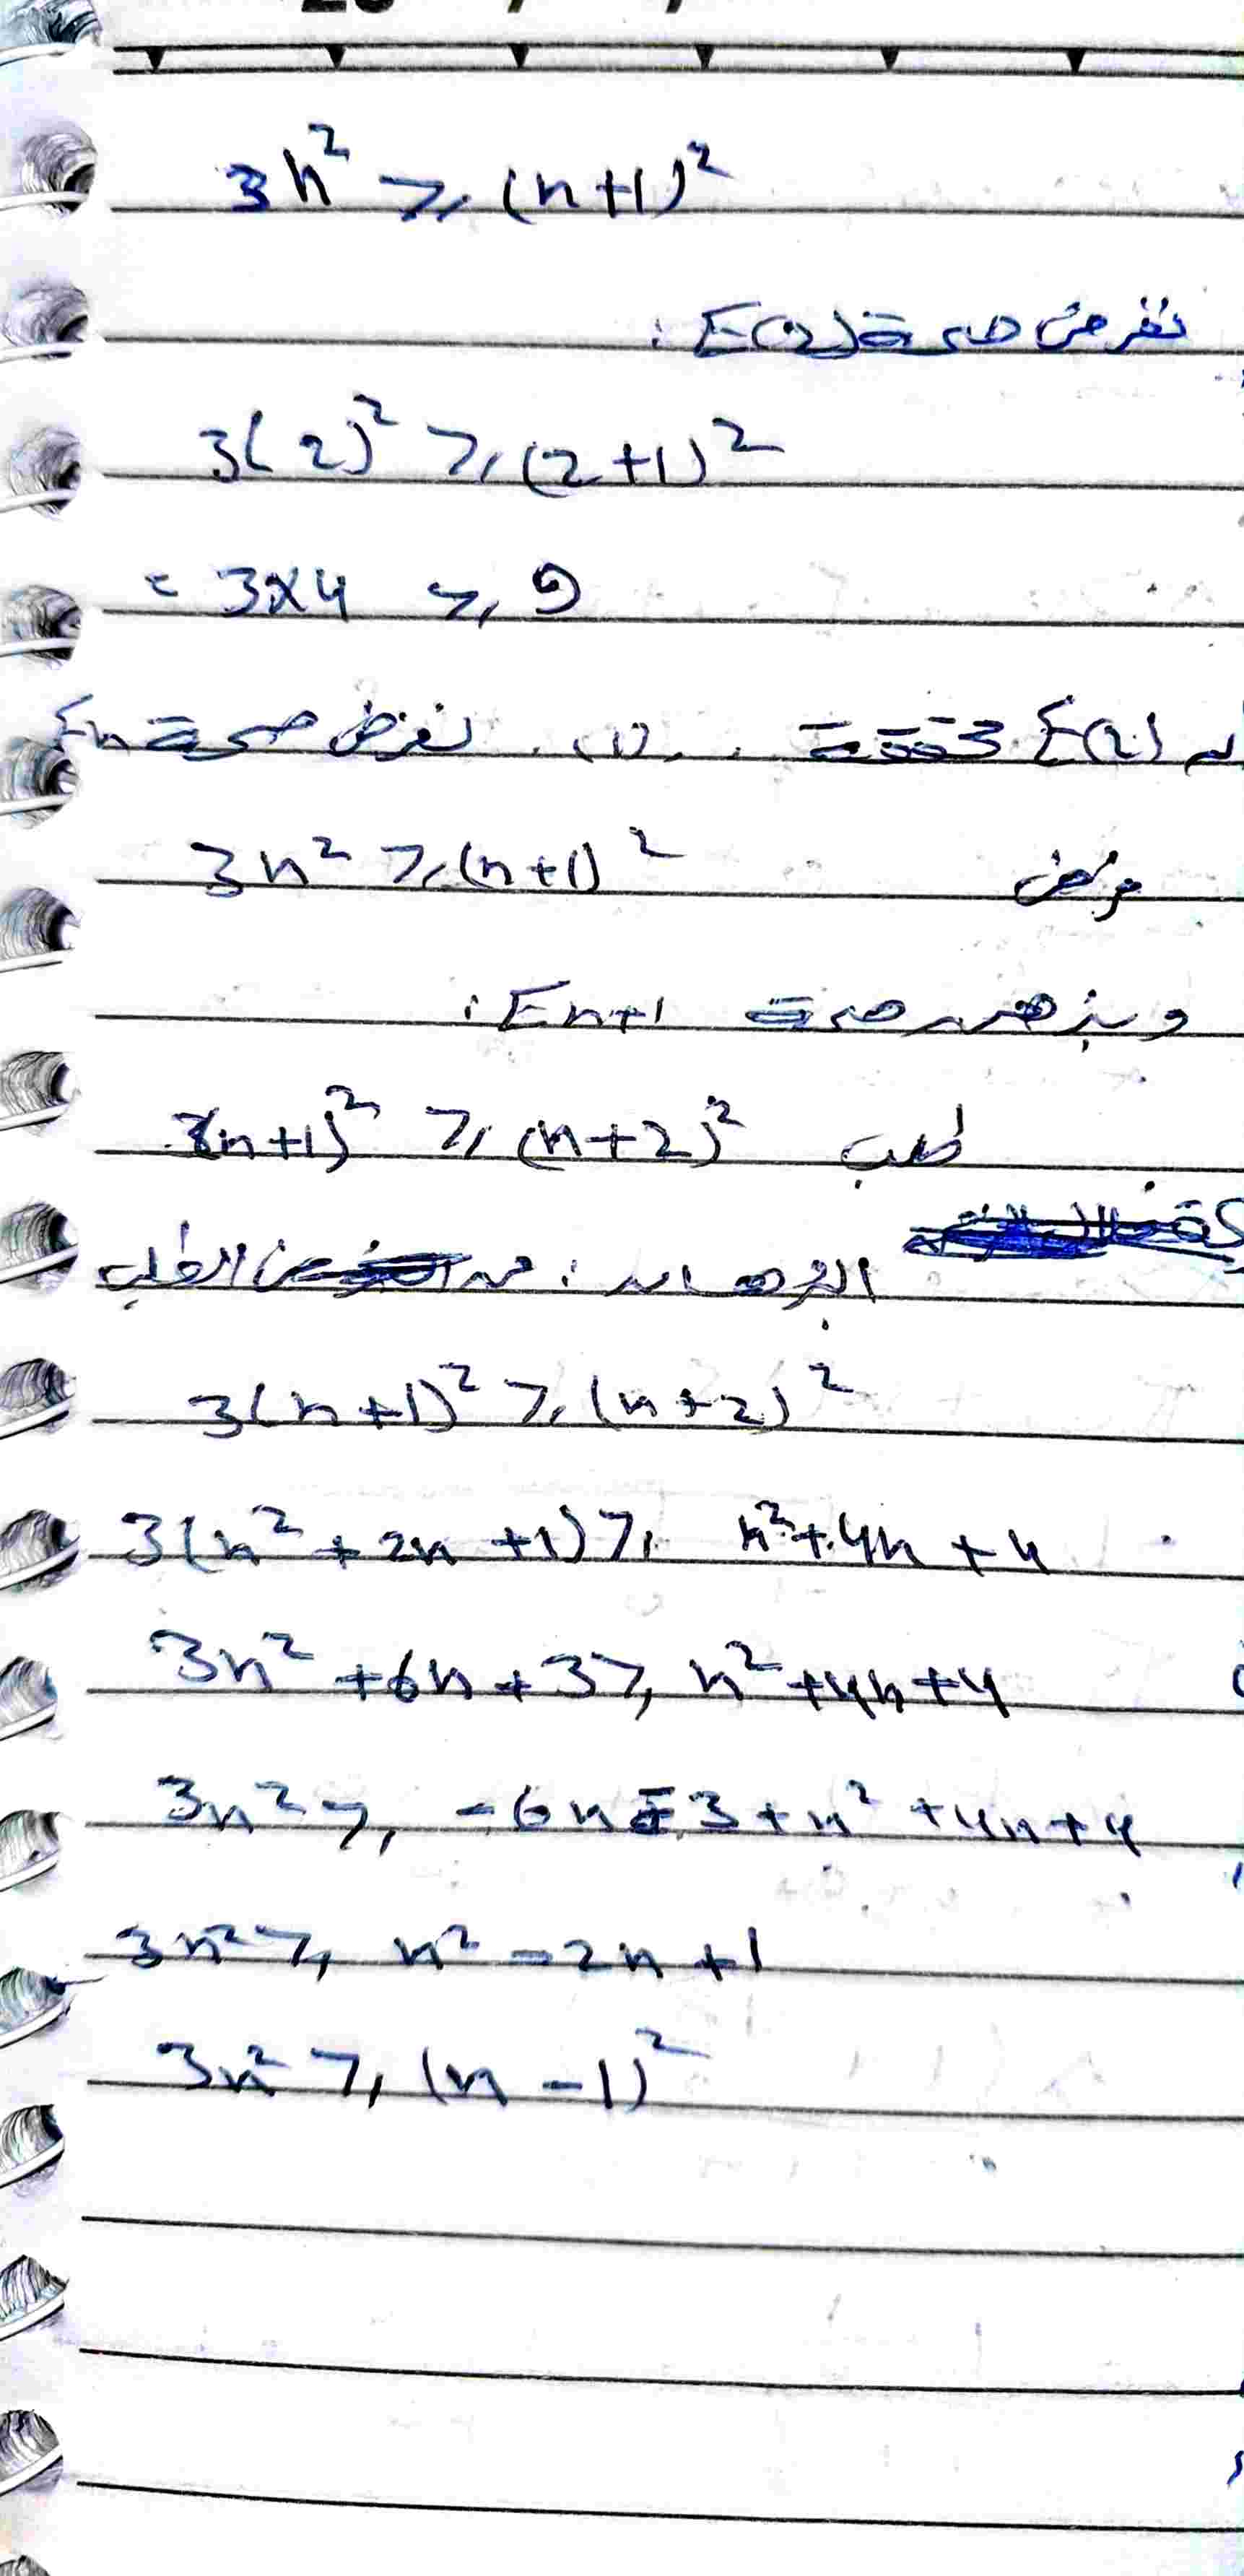 3n² ≥ (n+1)²
نفرض صحة E(2) :
3(2)² ≥ (2+1)²
= 3×4 ≥ 9
E(2) محققة ... (1) نفرض صحة En
3n² ≥ (n+1)² فرض
و نبرهن صحة En+1 :
3(n+1)² ≥ (n+2)² طلب
البرهان : من الطلب
3(n+1)² ≥ (n+2)²
3(n²+2n+1) ≥ n²+4n+4
3n²+6n+3 ≥ n²+4n+4
3n² ≥ -6n-3+n²+4n+4
3n² ≥ n²-2n+1
3n² ≥ (n-1)²